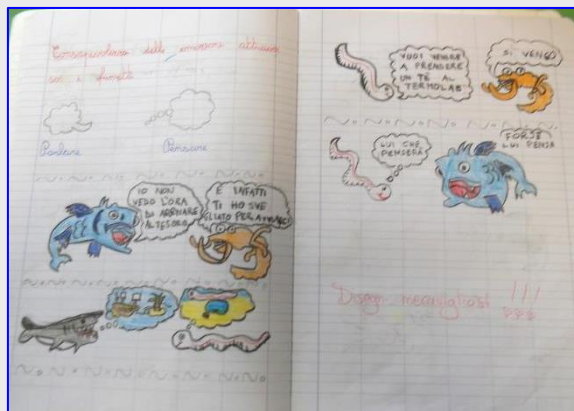 Consapevolezza delle emozioni attraver
so i fumetti
Parlare
Pensare
IO NON
VEDO L'ORA
DI ARRIVARE
AL TESORO
E INFATTI
TI HO SVE
GLIATO PER
VUOI VENIRE
A PRENDERE
UN TÈ AL
TERMOLAB
SI VENGO
LUI CHE
PENSERÀ
FORSE
LUI PENSA
Disegni meravigliosi !!!